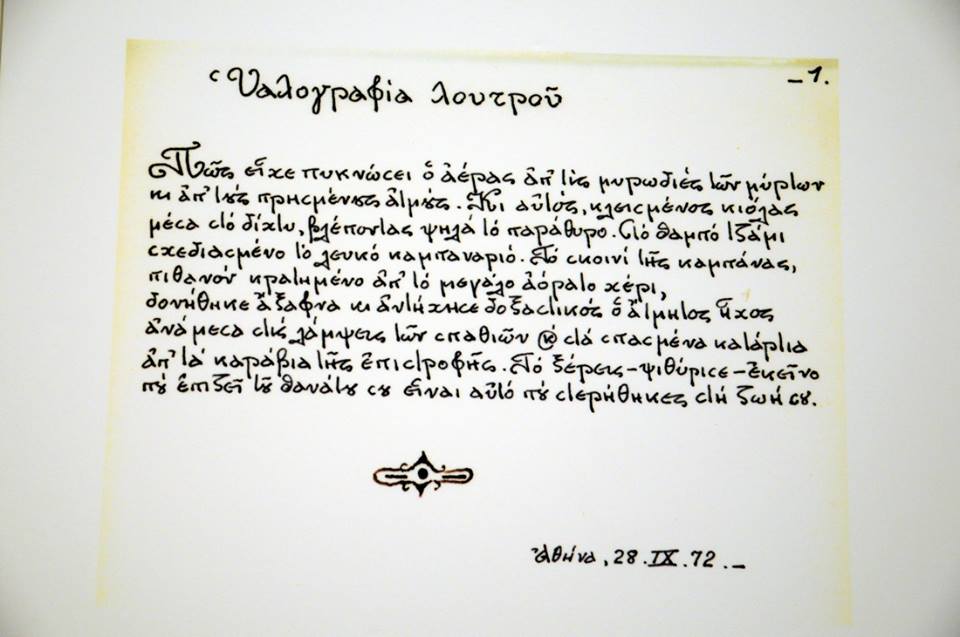 – 1.
Ὑαλογραφία λουτροῦ
Πῶς εἶχε πυκνώσει ὁ ἀέρας ἀπ' τὶς μυρωδιές τῶν μύρτων
κι ἀπ' τοὺς πρησμένους ἀτμούς. Κι αὐτός, κλεισμένος κιόλας
μέσα στό δίχτυ, βλέποντας ψηλά τό παράθυρο. Στό θαμπό τζάμι
σχεδιασμένο τό λευκό καμπαναριό. Τό σκοινί τῆς καμπάνας,
πιθανόν κρατημένο ἀπ' τό μεγάλο ἀόρατο χέρι,
δονήθηκε ἄξαφνα κι ἀντήχησε δοξαστικός ὁ ἄτμητος ἦχος
ἀνάμεσα στίς λάμψεις τῶν σπαθιῶν κ' στά σπασμένα κατάρτια
ἀπ' τά καράβια τῆς ἐπιστροφῆς. Τό ξέρεις – ψιθύρισε – ἐκεῖνο
πού ἐπιζεῖ τοῦ θανάτου σου εἶναι αὐτό πού στερήθηκες στή ζωή σου.
Ἀθήνα, 28.IX.72.–